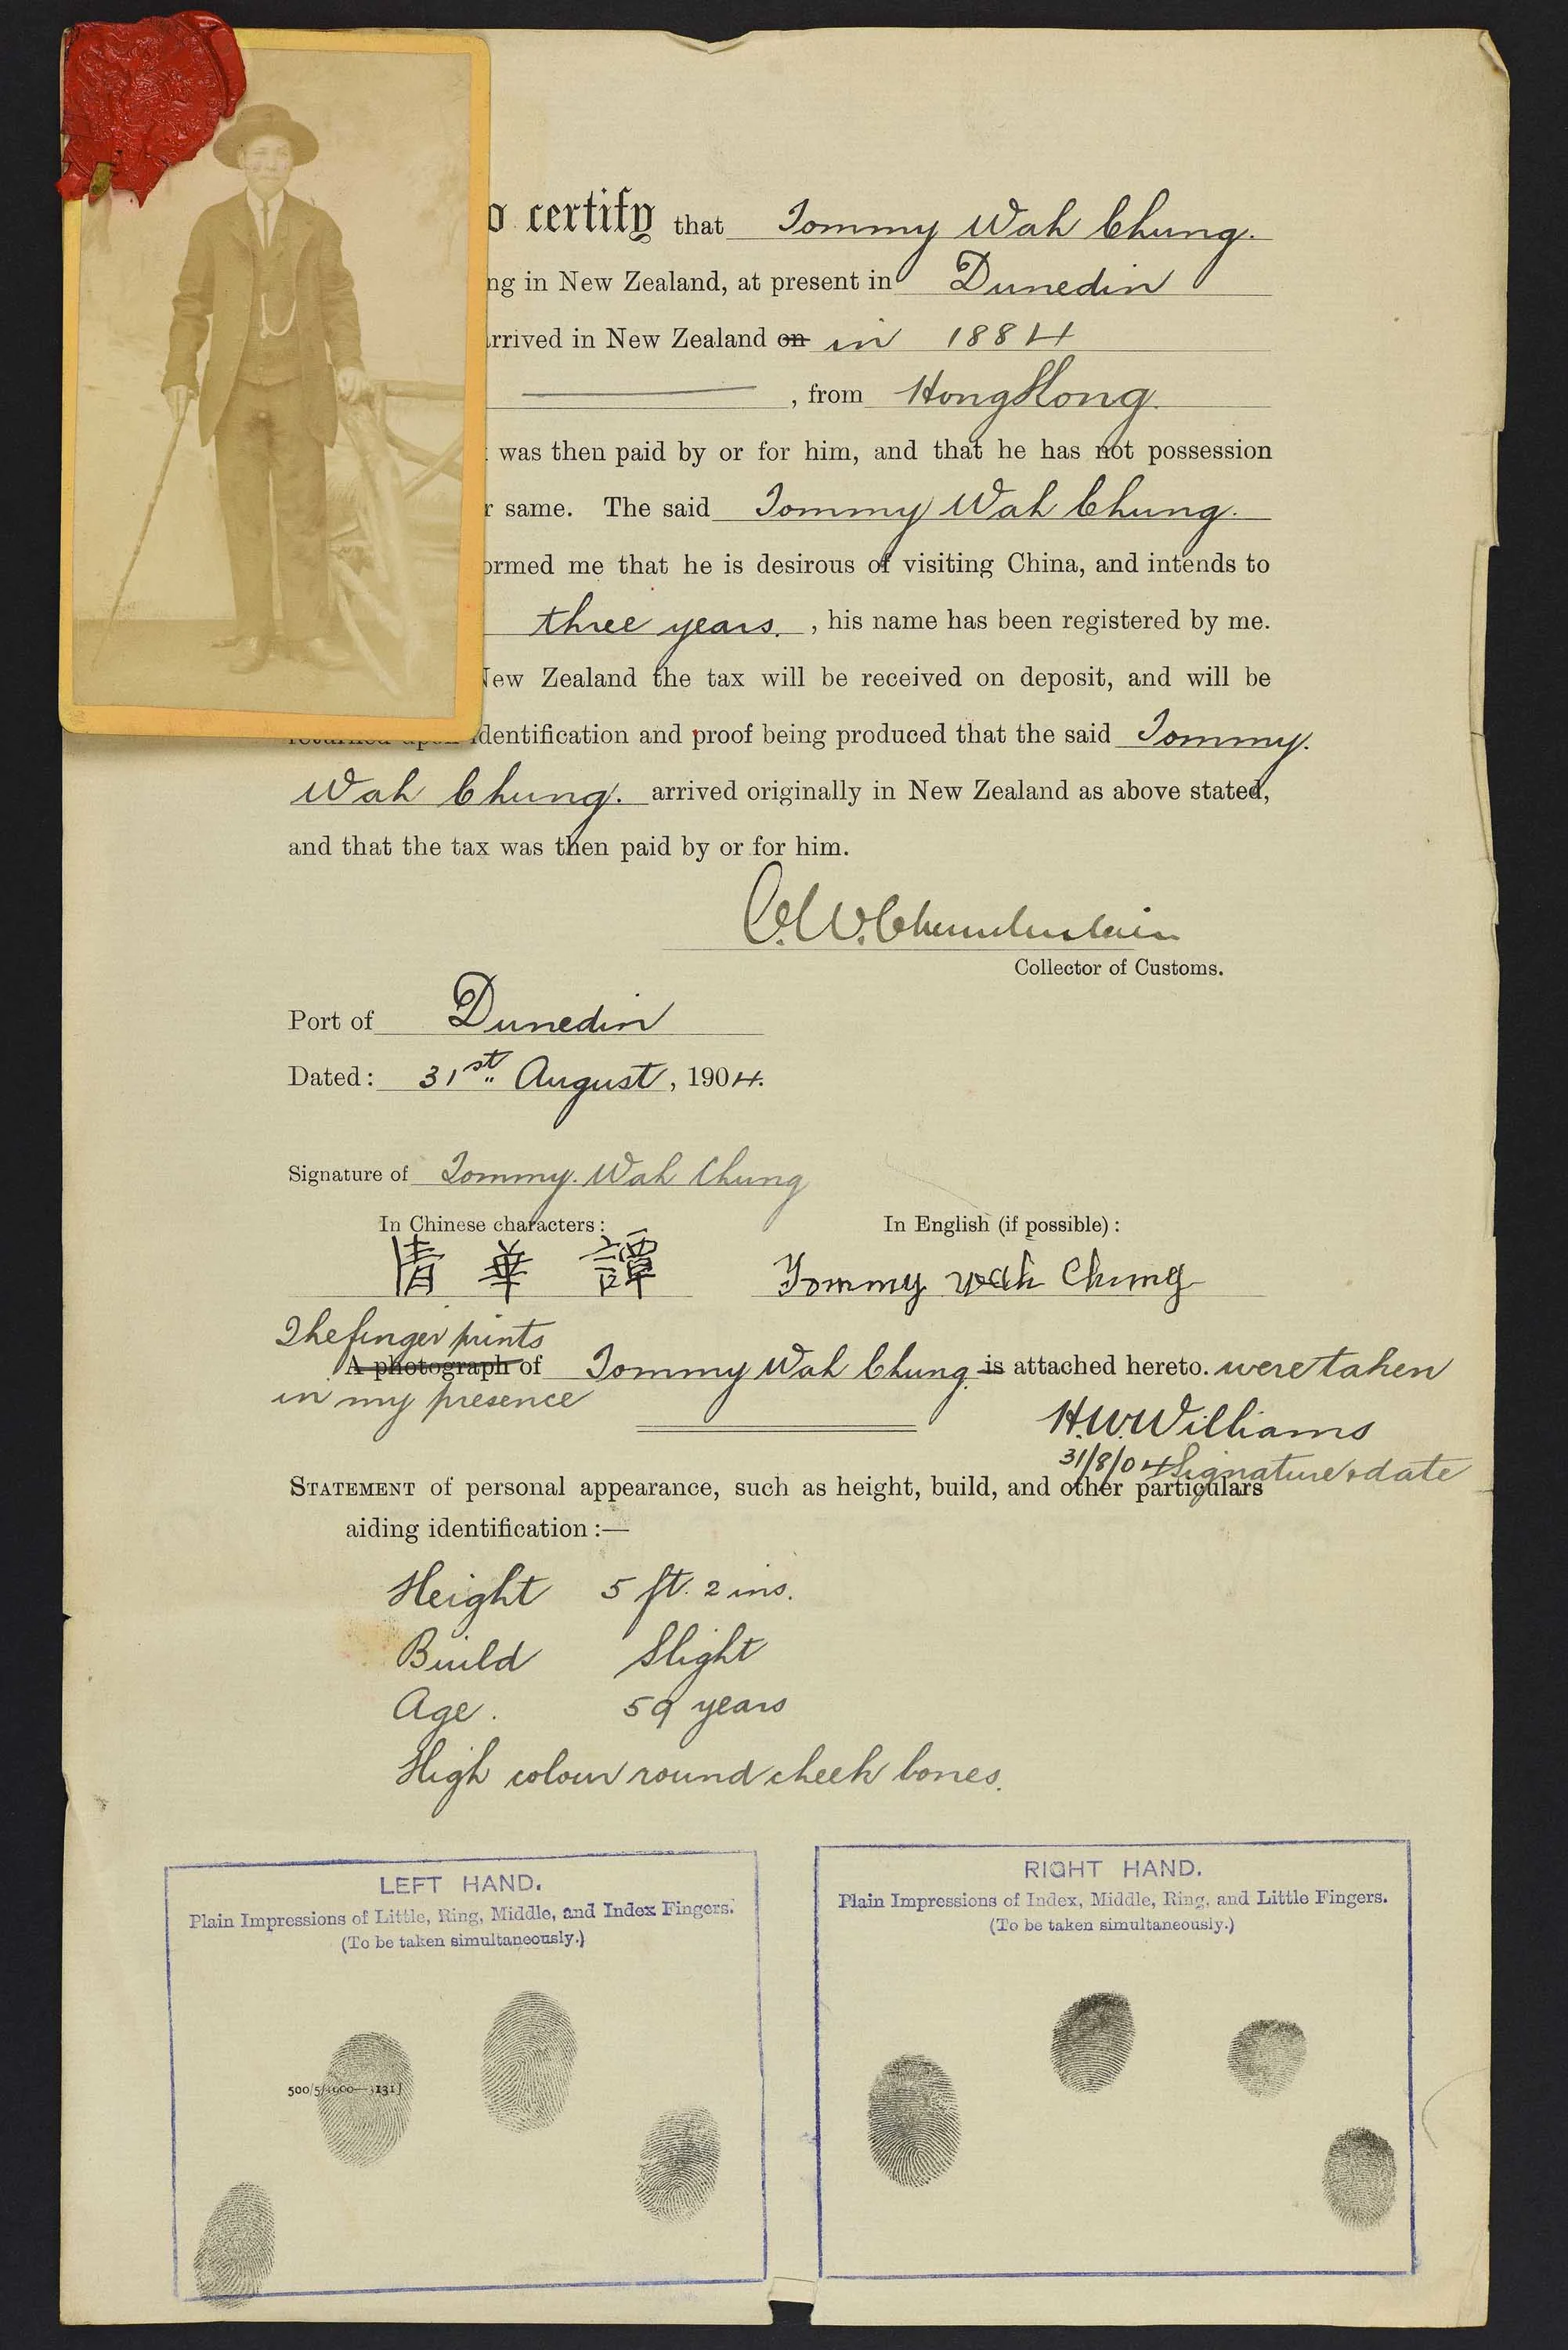 o certify that Tommy Wah Chung.
ng in New Zealand, at present in Dunedin
rrived in New Zealand on in 1884
, from Hong Kong.
was then paid by or for him, and that he has not possession
r same. The said Tommy Wah Chung.
ormed me that he is desirous of visiting China, and intends to
three years. , his name has been registered by me.
New Zealand the tax will be received on deposit, and will be
returned upon identification and proof being produced that the said Tommy.
Wah Chung. arrived originally in New Zealand as above stated,
and that the tax was then paid by or for him.
C.W. Chamberlain
Collector of Customs.
Port of Dunedin
Dated: 31st August, 1904.
Signature of Tommy. Wah Chung
In Chinese characters: In English (if possible):
清 華 譚 Tommy wah Chung
The finger prints
A photograph of Tommy Wah Chung. is attached hereto. were taken
in my presence
H.W. Williams
31/8/04 Signature & date
STATEMENT of personal appearance, such as height, build, and other particulars
aiding identification:—
Height 5 ft. 2 ins.
Build Slight
Age. 59 years
High colour round cheek bones.
LEFT HAND.
Plain Impressions of Little, Ring, Middle, and Index Fingers.
(To be taken simultaneously.)
RIGHT HAND.
Plain Impressions of Index, Middle, Ring, and Little Fingers.
(To be taken simultaneously.)